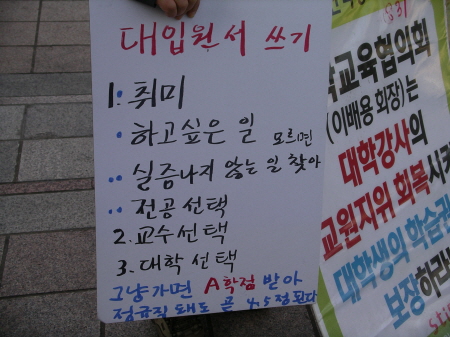 대입원서 쓰기
1. 취미
· 하고싶은 일 모르면
·· 실증나지 않는 일 찾아
·· 전공선택
2. 교수선택
3. 대학 선택
그냥가면 A학점 받아
정규직 돼도 곧 45정된다
학교육협의회
(이배용 회장)는
대학강사의
교원지위 회복시키
대학생의 학습권
보장하라